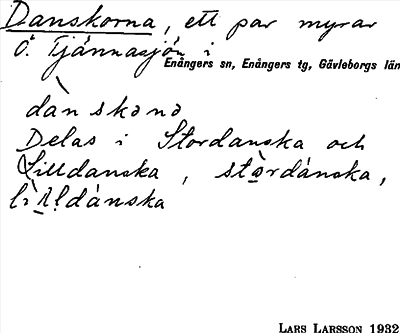 Danskorna, ett par myrar
Ö. Tjärnasjön i
Enångers sn, Enångers tg, Gävleborgs län
dànskənə
Delas i Stordanska och
Lilldanska, stòrdánska,
lìlldánska
LARS LARSSON 1932